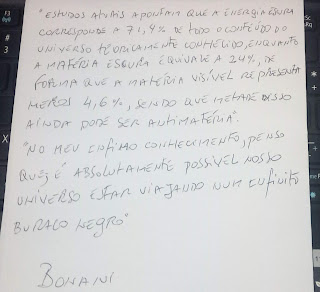 "ESTUDOS ATUAIS APONTAM QUE A ENERGIA ESCURA
CORRESPONDE A 71,4% DE TODO O CONTEÚDO DO
UNIVERSO TEORICAMENTE CONHECIDO, ENQUANTO
A MATÉRIA ESCURA EQUIVALE A 24%, DE
FORMA QUE A MATÉRIA VISÍVEL REPRESENTA
MEROS 4,6%, SENDO QUE METADE DESSO
AINDA PODE SER ANTIMATÉRIA".
"NO MEU ÍNFIMO CONHECIMENTO, PENSO
QUE É ABSOLUTAMENTE POSSÍVEL NOSSO
UNIVERSO ESTAR VIAJANDO NUM INFINITO
BURACO NEGRO"
BONANI